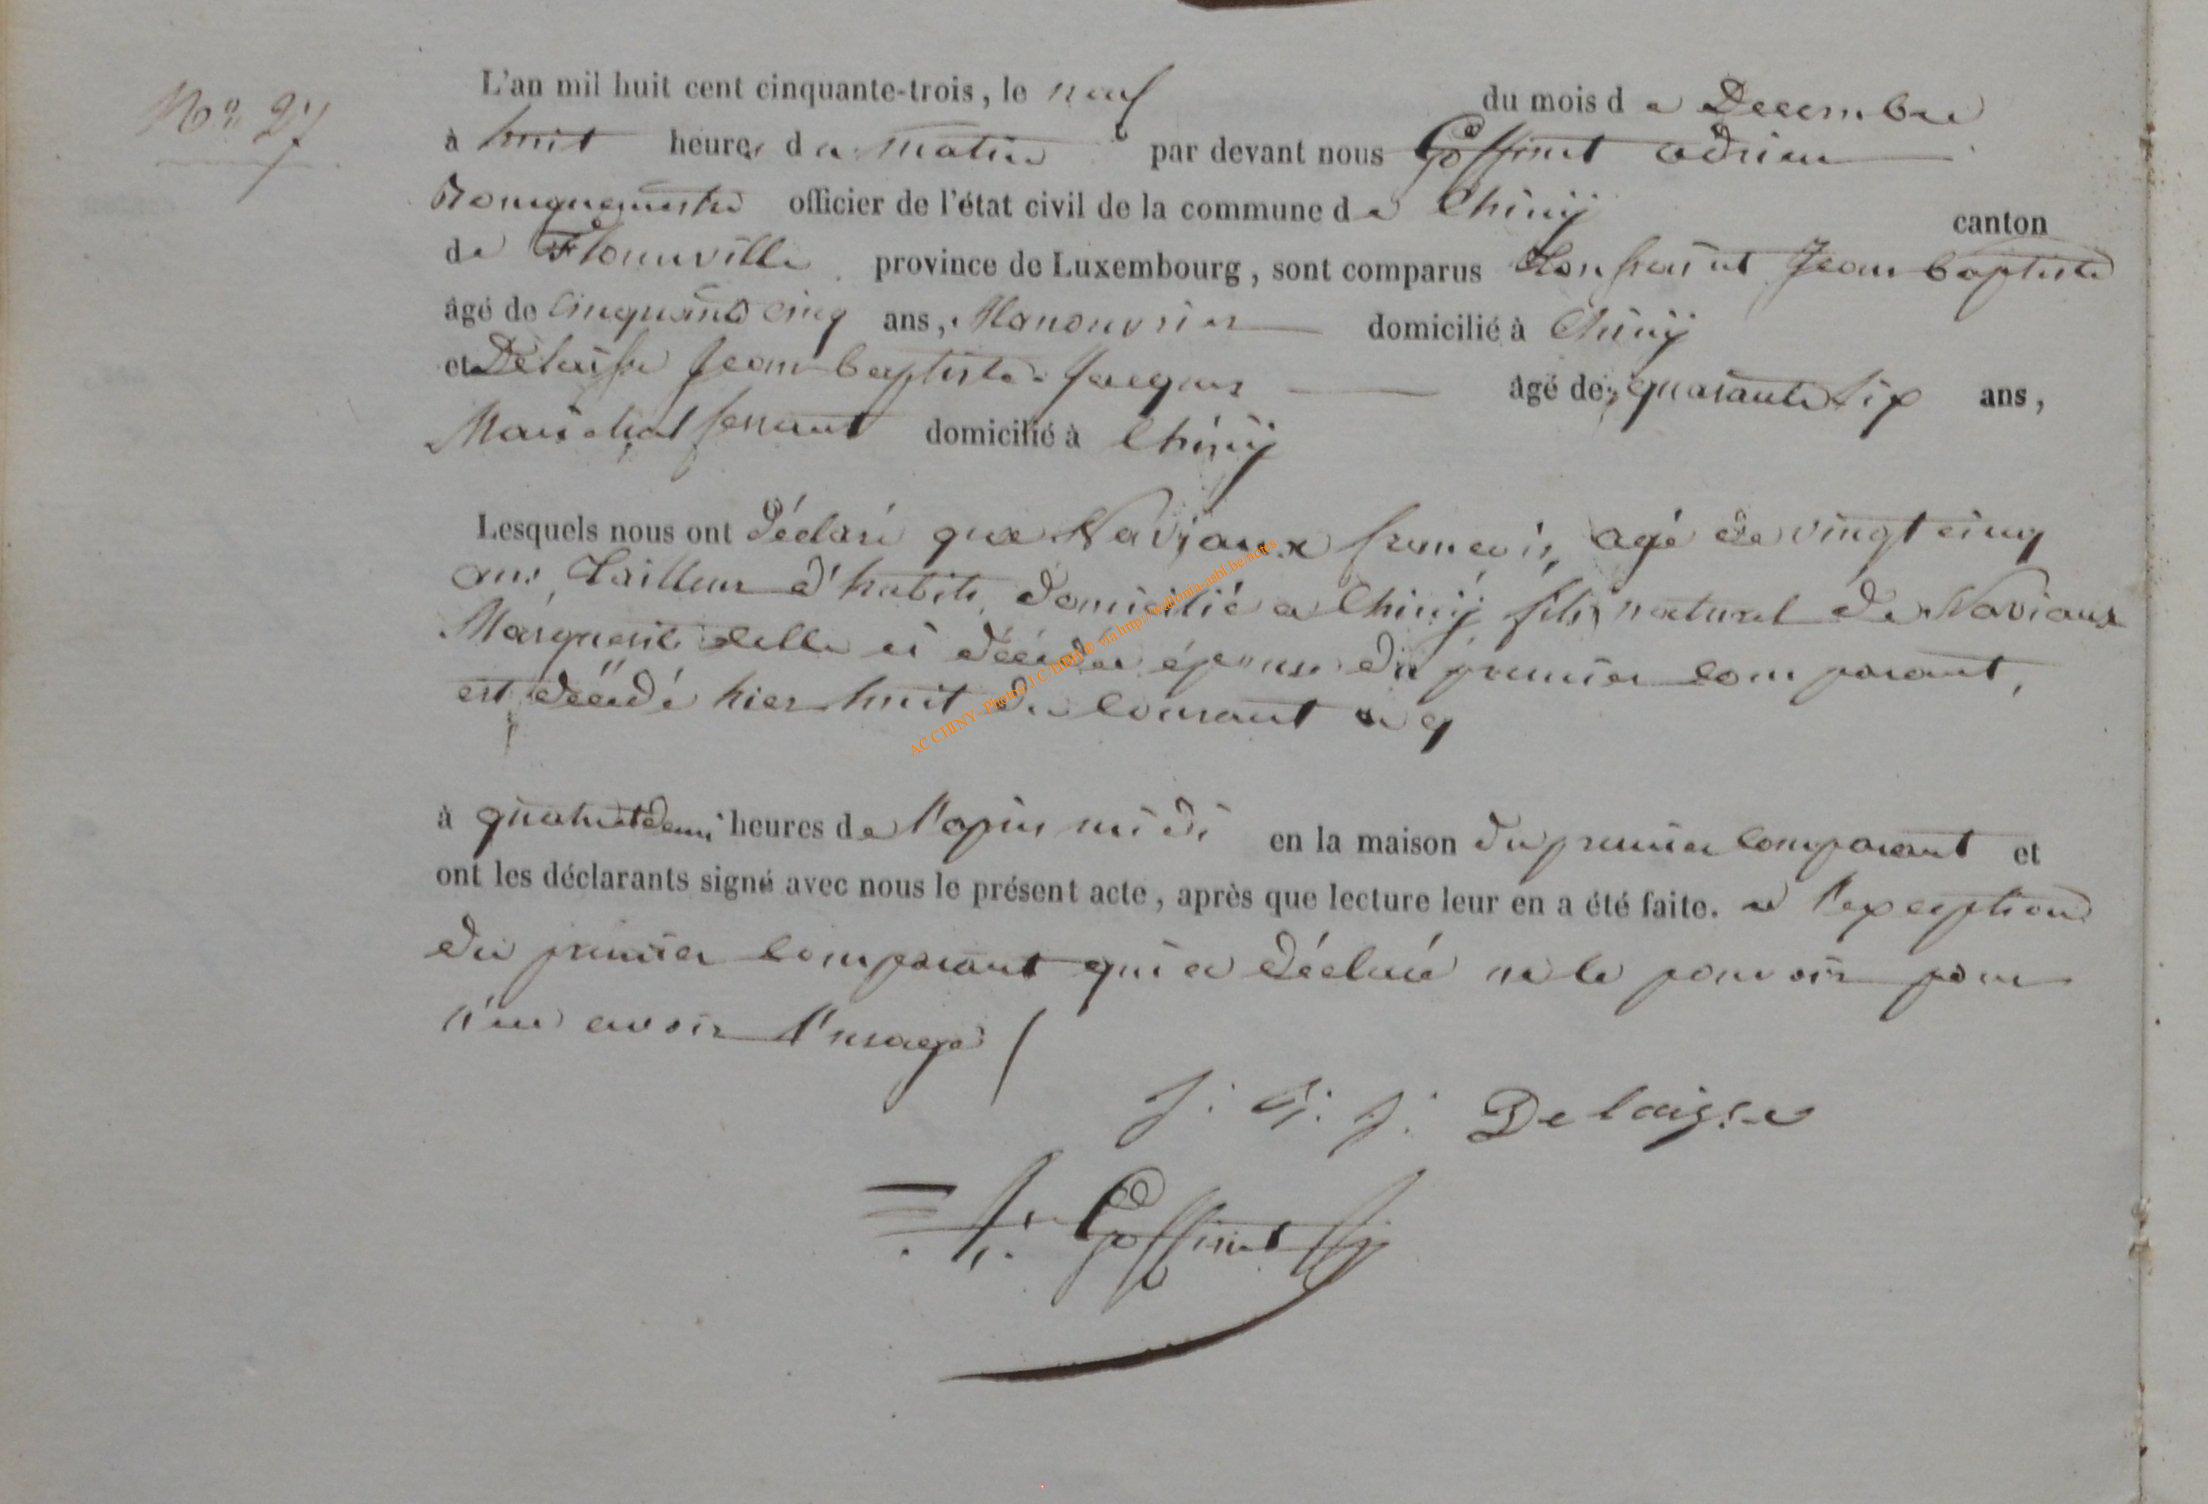 N° 27
L'an mil huit cent cinquante-trois, le neuf du mois de Decembre
à huit heures du matin par devant nous Goffinet adrien
Bourguemestre officier de l'état civil de la commune de Chiny canton
de Florenville province de Luxembourg, sont comparus Jean baptiste
âgé de cinquante cinq ans, Manouvrier domicilié à Chiny
et Delaisse Jean baptiste Jacques âgé de quarante six ans,
Marechal ferrant domicilié à Chiny
Lesquels nous ont déclaré que Naviaux francois, agé de vingt cinq
ans, Tailleur d'habits, domicilié a Chiny, fils naturel de Naviaux
Marguerite celle ci décédée épouse du premier comparant,
est décédé hier huit du courant
à quatre et demi heures de l'apres midi en la maison du premier comparant et
ont les déclarants signé avec nous le présent acte, après que lecture leur en a été faite. a l'exception
du premier comparant qui a déclaré ne le pouvoir pour
n'en avoir l'usage /
J. B. J. Delaisse
A. Goffinet
AC CHINY - Photos J.C